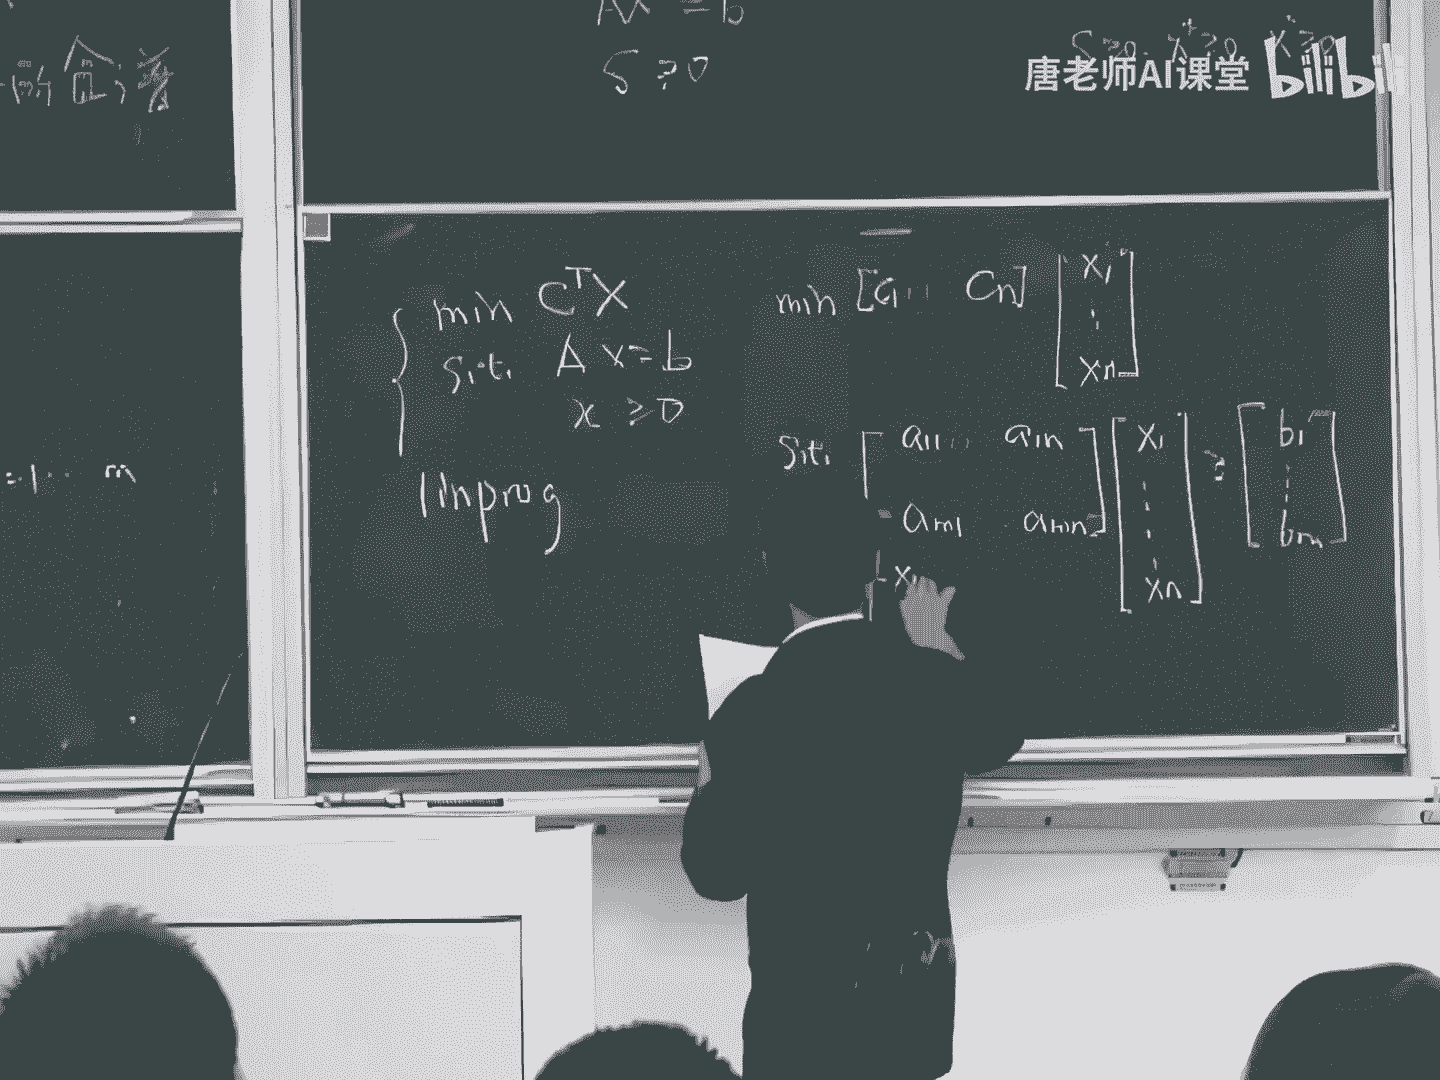 Ax = b
S ≥ 0
S ≥ 0 x⁺ ≥ 0 x⁻ ≥ 0
唐老师AI课堂 bilibili
m
min CᵀX
s.t. A x = b
x ≥ 0
linprog
min [c₁ ... cₙ] [x₁ ⋮ xₙ]
s.t. [a₁₁ ... a₁ₙ
aₘ₁ aₘₙ] [x₁ ⋮ xₙ] = [b₁ ⋮ bₘ]
[x₁